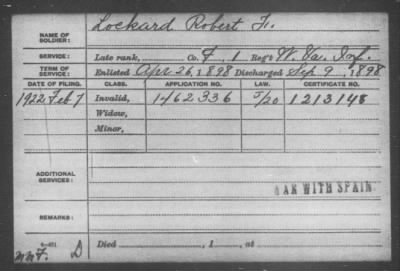 NAME OF SOLDIER: Lockard Robert F.
SERVICE: Late rank, Co. G 1 Reg't W. Va. Inf.
TERM OF SERVICE: Enlisted Apr 26, 1898 Discharged Sep 9, 1898
DATE OF FILING. CLASS. APPLICATION NO. LAW. CERTIFICATE NO.
1922 Feb 7 Invalid, 1462336 J/20 1213148
Widow,
Minor,
ADDITIONAL SERVICES:
WAR WITH SPAIN
REMARKS:
Died , 1 , at